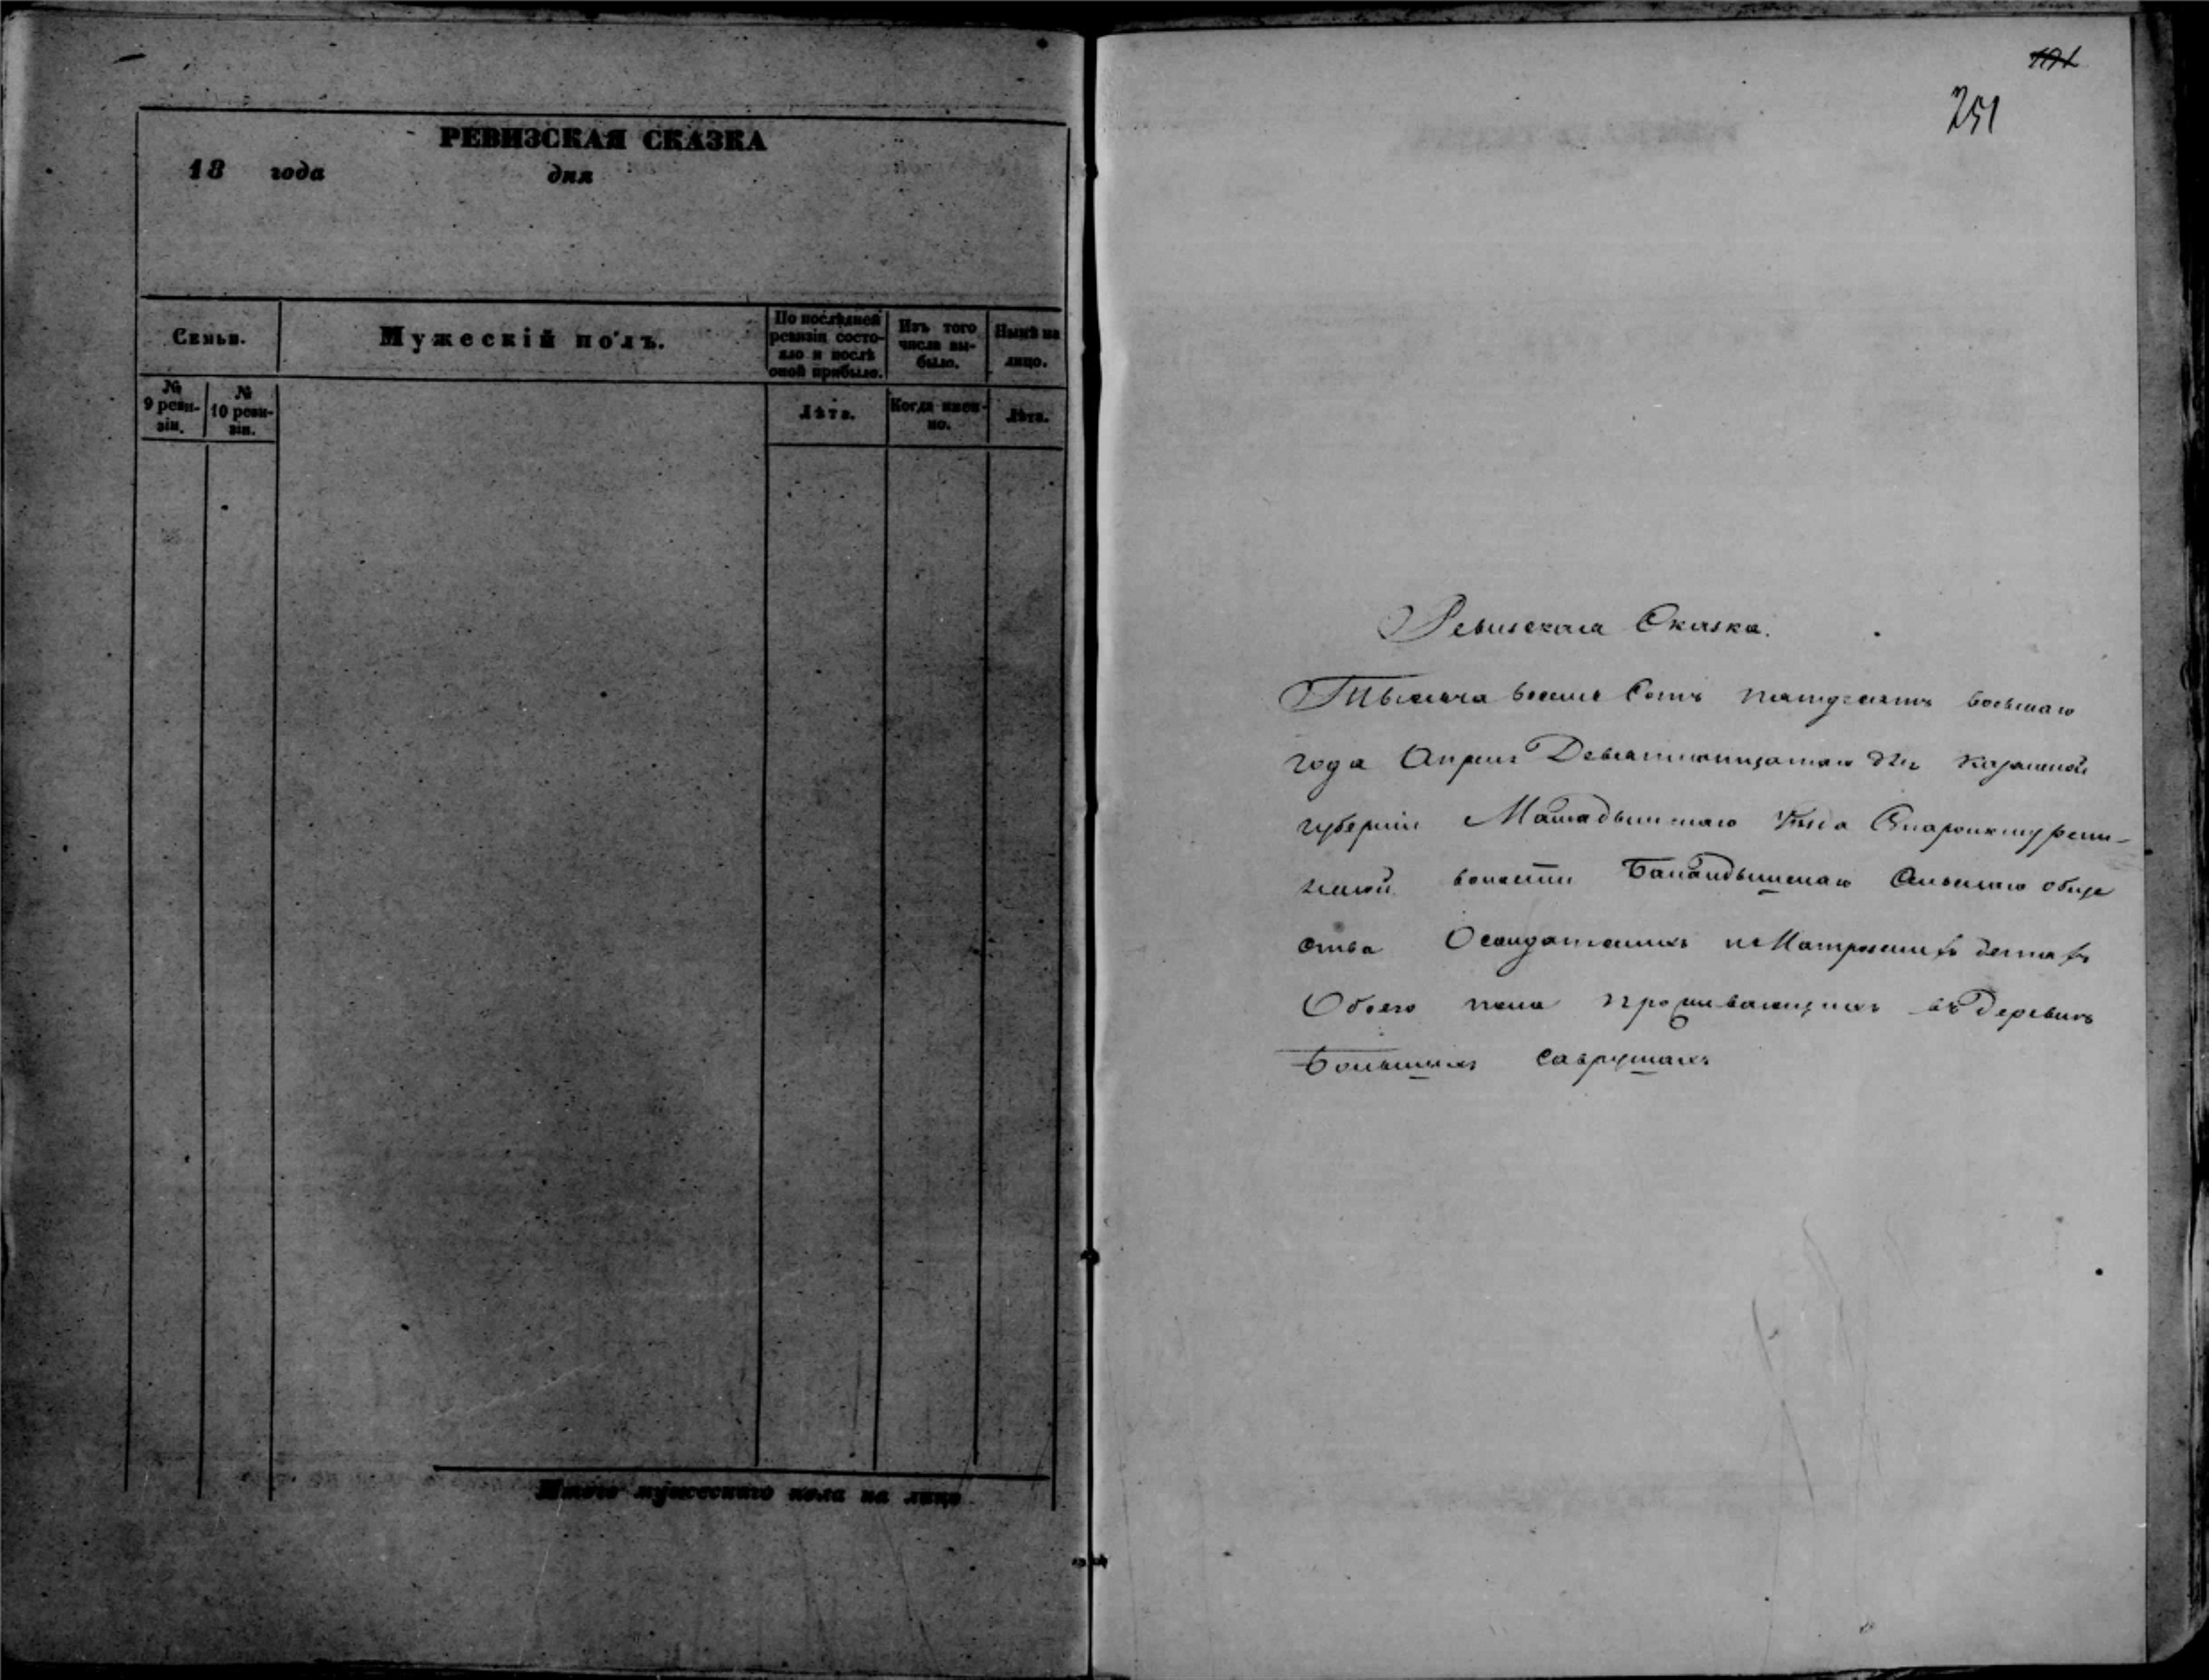 РЕВИЗСКАЯ СКАЗКА
18 года дня
Семьи.
Мужескій полъ.
По послѣдней ревизіи состо-
яло и послѣ
оной прибыло.
Изъ того
числа вы-
было.
Нынѣ на
лицо.
№
9 реви-
зіи.
№
10 реви-
зіи.
Лѣта.
Когда имен-
но.
Лѣта.
Итого мужескаго пола на лицо
251
Ревизская Сказка.
Тысяча восемь Сотъ пятьдесятъ восьмаго
года Апреля Девятнатцатаго дня Казанской
губерніи Мамадышскаго Уѣзда
волости общe
ства Солдатскихъ и Матроскихъ детяхъ
Обоего пола проживающихъ въ Деревнѣ
Большихъ Савրушахъ